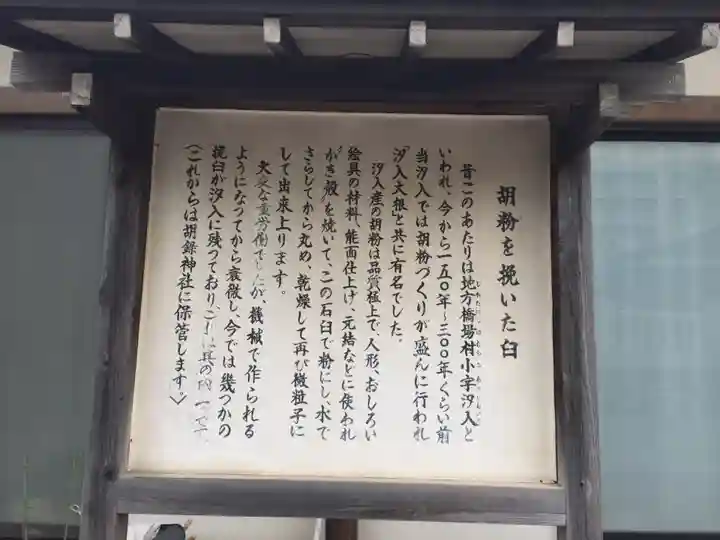 胡粉を挽いた臼
昔このあたりは地方橋場村小字汐入と
いわれ、今から一五〇年〜三〇〇年くらい前
当汐入では胡粉づくりが盛んに行われ
「汐入大根」と共に有名でした。
汐入産の胡粉は品質極上で、人形、おしろい
絵具の材料、能面仕上げ、元結などに使われ
「かき殻」を焼いて、この石臼で粉にし、水で
さらしてから丸め、乾燥して再び微粒子に
して出来上ります。
大変な重労働でしたが、機械で作られる
ようになってから衰微し、今では幾つかの
挽臼が汐入に残っており、これは其の内の一つです
(これからは胡録神社に保管します。)